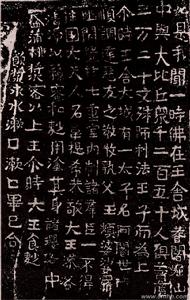 是我聞一時佛在王舍城耆闍崛山
中與大比丘眾千二百五十人俱菩薩
三万二千文殊師利法王子而為上
尒時王舍大城有一太子名阿闍世
順調達惡友之教收執父王頻婆娑羅
閉置七重室內制諸群臣一不得
往國大夫人名韋提希恭敬大王澡浴
清淨以蘇蜜和麨用塗其身諸瓔珞
蒲桃漿密以上王尒時大王食麨
飲漿求水漱口漱口畢已合